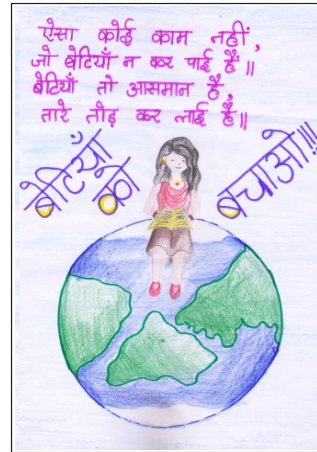 ऐसा कोई काम नहीं,
जो बेटियाँ न कर पाई हैं॥
बेटियाँ तो आसमान है,
तारे तोड़ कर लाई है॥
बेटियाँ को बचाओ!!!